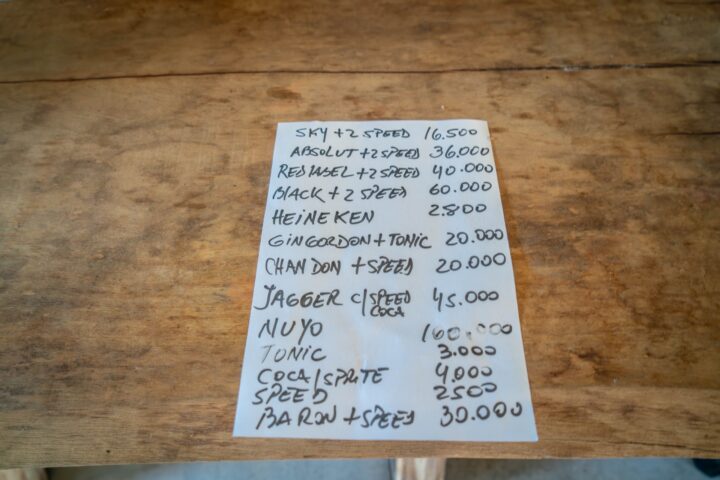 SKY + 2 SPEED 16.500
ABSOLUT + 2 SPEED 36.000
RED LABEL + 2 SPEED 40.000
BLACK + 2 SPEED 60.000
HEINEKEN 2.800
GIN GORDON + TONIC 20.000
CHANDON + SPEED 20.000
JAGGER C/SPEED 45.000
COCA
NUYO 160.000
TONIC 3.000
COCA/SPRITE 4.000
SPEED 2500
BARON + SPEED 30.000